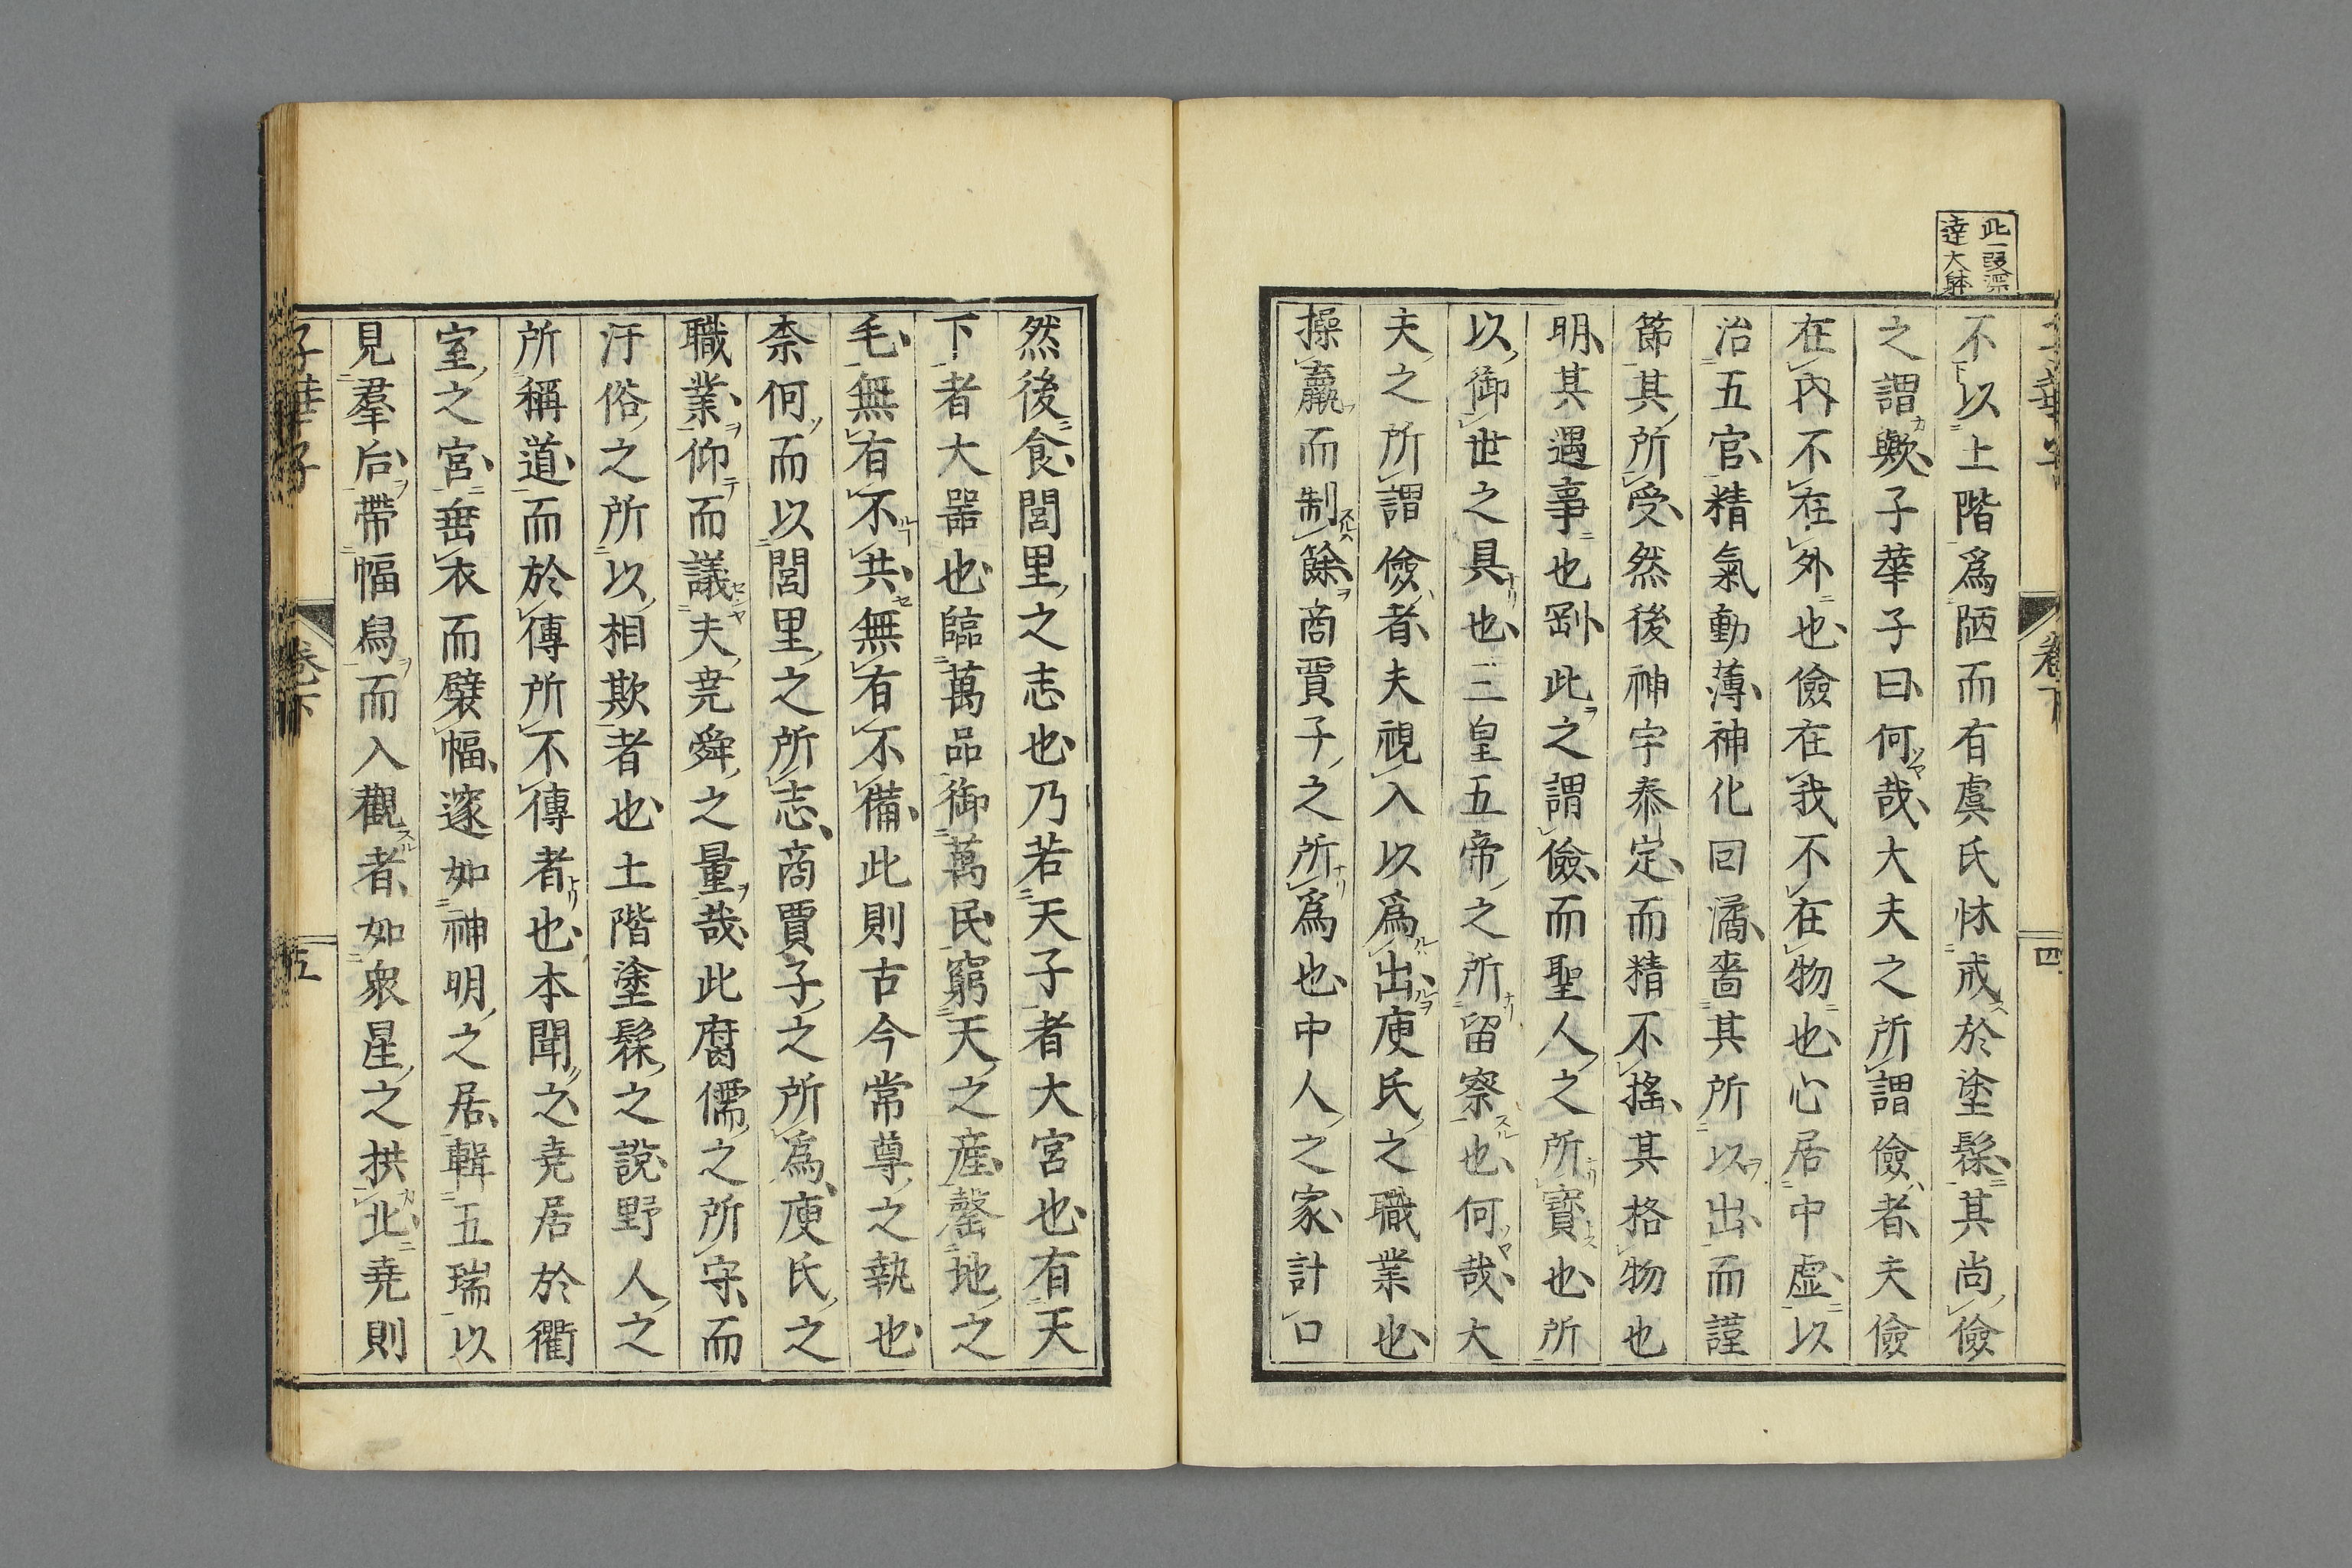 此一段深
達大躰
不以土階爲陋而有虞氏怵戒於塗髹其尚儉
之謂歟子華子曰何哉大夫之所謂儉者夫儉
在內不在外也儉在我不在物也心居中虛以
治五官精氣動薄神化回潏嗇其所以出而謹
節其所受然後神宇泰定而精不搖其格物也
明其遇事也剛此之謂儉而聖人之所寶也所
以御世之具也三皇五帝之所留察也何哉大
夫之所謂儉者夫視入以爲出庾氏之職業也
操贏而制餘商賈子之所爲也中人之家計口
然後食閭里之志也乃若天子者大宮也有天
下者大噐也臨萬品御萬民窮天之產罄地之
毛無有不共無有不備此則古今常尊之執也
柰何而以閭里之所志商賈子之所爲庾氏之
職業仰而議夫堯舜之量哉此腐儒之所守而
汙俗之所以相欺者也土階塗髹之說野人之
所稱道而於傳所不傳者也本聞之堯居於衢
室之宮垂衣而襞幅邃如神明之居輯五瑞以
見羣后帶幅舄而入觀者如衆星之拱北堯則
子華子
卷下
五